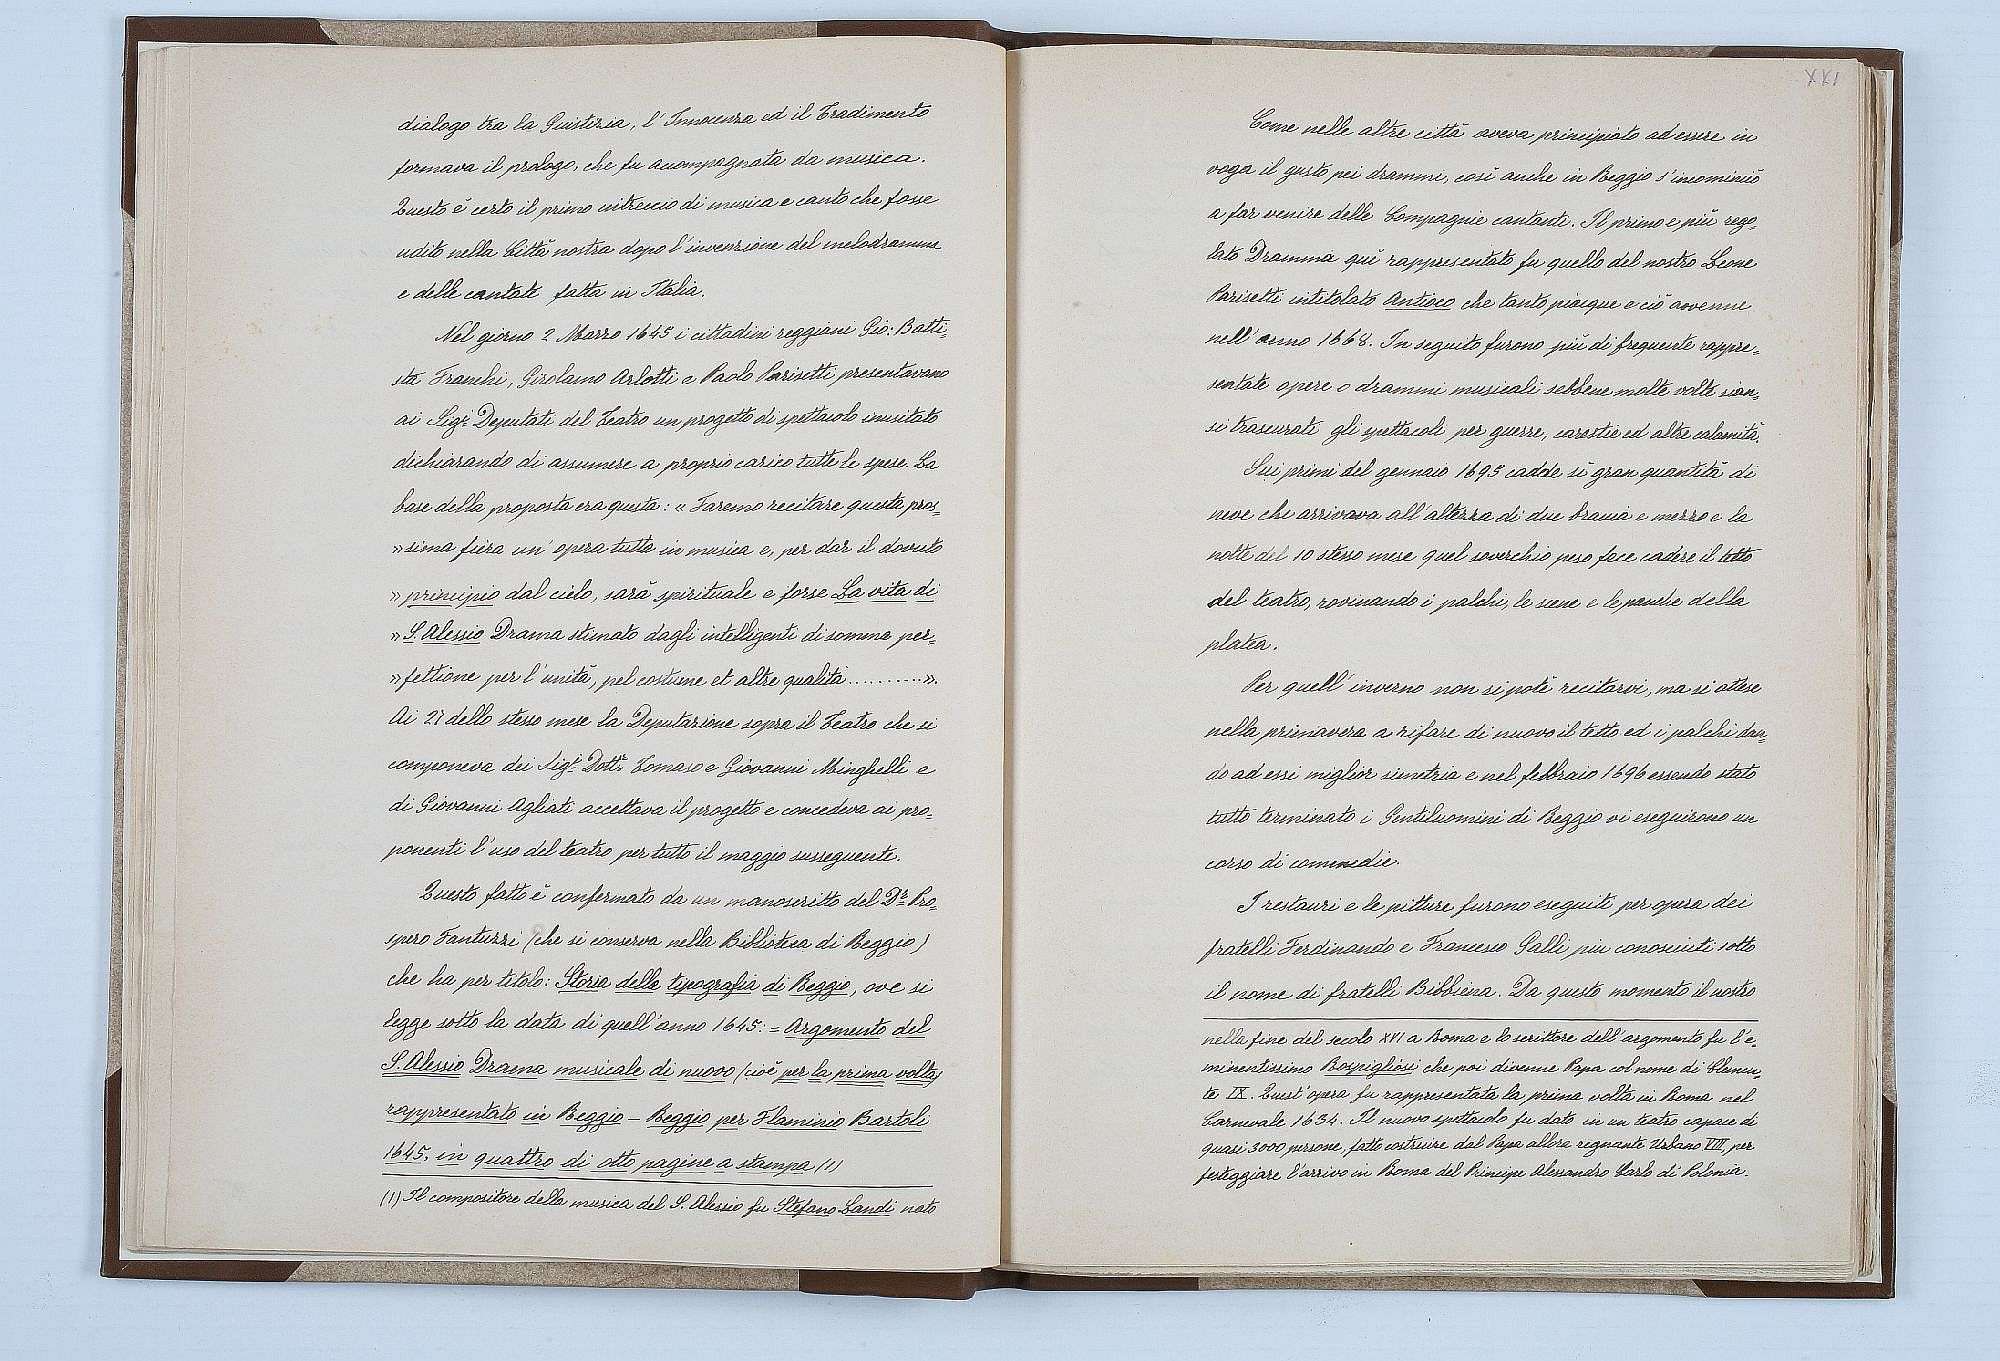 dialogo tra la Guistizia, l'Innocenza ed il Tradimento
formava il prologo, che fu acompagnata da musica.
Questo è certo il primo intreccio di musica e canto che fosse
udito nella Città nostra dopo l'invenzione del melodramma
e delle cantate fatta in Italia.
Nel giorno 2 Marzo 1645 i cittadini reggiani Gio: Batti-
sta Franchi, Girolamo Arlotti e Paolo Parisetti presentavano
ai Sig.i Deputati del Teatro un progetto di spettacolo inusitato
dichiarando di assumere a proprio carico tutte le spese. La
base della proposta era questa: « Faremo recitare questa pros-
» sima fiera un' opera tutta in musica e, per dar il dovuto
» principio dal cielo, sarà spirituale e forse La vita di
» S. Alessio Drama stimato dagli intelligenti di somma per-
» fettione per l'unità, pel costume et altre qualità .......... ».
Ai 27 dello stesso mese la Deputazione sopra il Teatro che si
componeva dei Sig.i Dott.i Tomaso e Giovanni Minghelli e
di Giovanni Agliati accettava il progetto e concedeva ai pro-
ponenti l'uso del teatro per tutto il maggio susseguente.
Questo fatto è confermato da un manoscritto del D.r Pro-
spero Fantuzzi (che si conserva nella Biblioteca di Reggio)
che ha per titolo: Storia della tipografia di Reggio, ove si
legge sotto la data di quell'anno 1645: = Argomento del
S. Alessio Drama musicale di nuovo (cioè per la prima volta)
rappresentato in Reggio – Reggio per Flaminio Bartoli
1645, in quattro di otto pagine a stampa (1)
(1) Il compositore della musica del S. Alessio fu Stefano Landi nato
XXI
Come nelle altre città aveva principiato ad essere in
voga il gusto pei drammi, così anche in Reggio s'incominiò
a far venire delle Compagnie cantanti. Il primo e più rego-
lato Dramma quì rappresentato fu quello del nostro Leone
Parisetti intitolato Antioco che tanto piacque e ciò avvenne
nell' anno 1668. In seguito furono più di frequente rappre-
sentate opere o drammi musicali sebbene molte volte sian-
si trascurati gli spettacoli per guerre, carestie ed altre calamità.
Sui primi del gennaio 1695 cadde sì gran quantità di
neve che arrivava all'altezza di due braccia e mezzo e la
notte del 10 stesso mese quel soverchio peso fece cadere il tetto
del teatro, rovinando i palchi, le scene e le panche della
platea.
Per quell' inverno non si potè recitarvi, ma si attese
nella primavera a rifare di nuovo il tetto ed i palchi dan-
do ad essi miglior simetria e nel febbraio 1696 essendo stato
tutto terminato i Gentiluomini di Reggio vi eseguirono un
corso di commedie.
I restauri e le pitture furono eseguiti per opera dei
fratelli Ferdinando e Francesco Galli piu conosciuti sotto
il nome di fratelli Bibbiena. Da questo momento il nostro
nella fine del secolo XVI a Roma e lo scrittore dell'argomento fu l'e-
minentissimo Rospigliosi che poi divenne Papa col nome di Clemen-
te IX. Quest'opera fu rappresentata la prima volta in Roma nel
Carnevale 1634. Il nuovo spettacolo fu dato in un teatro capace di
quasi 3000 persone, fatto costruire dal Papa allora regnante Urbano VIII, per
festeggiare l'arrivo in Roma del Principe Alessandro Carlo di Polonia.